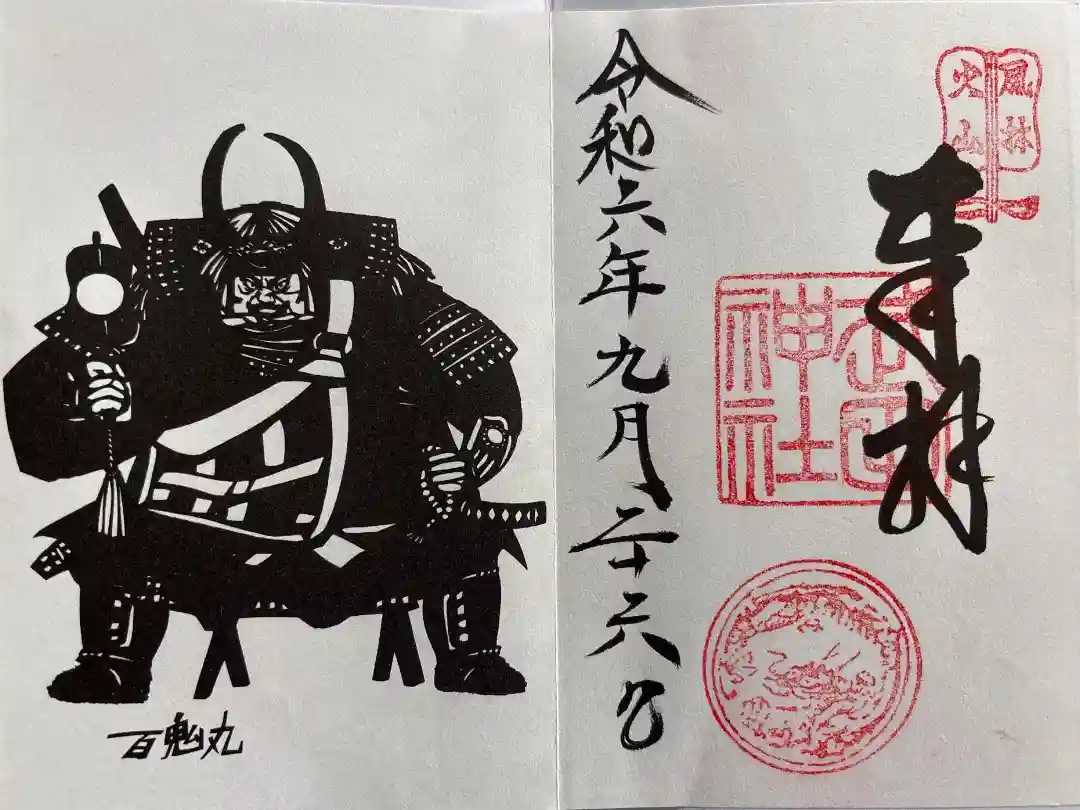 風林
火山
奉拝
武田
神社
令和六年九月二十六日
百鬼丸